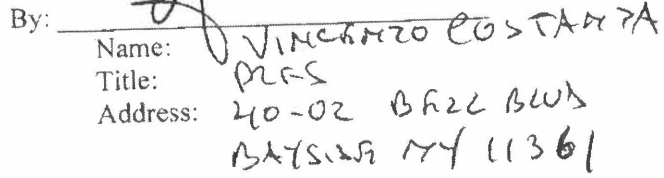 By:
Name: VINCENZO COSTANZA
Title: PRES
Address: 40-02 BELL BLVD
BAYSIDE NY 11361